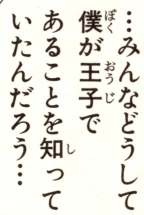 …みんなどうして
僕が王子で
あることを知って
いたんだろう…